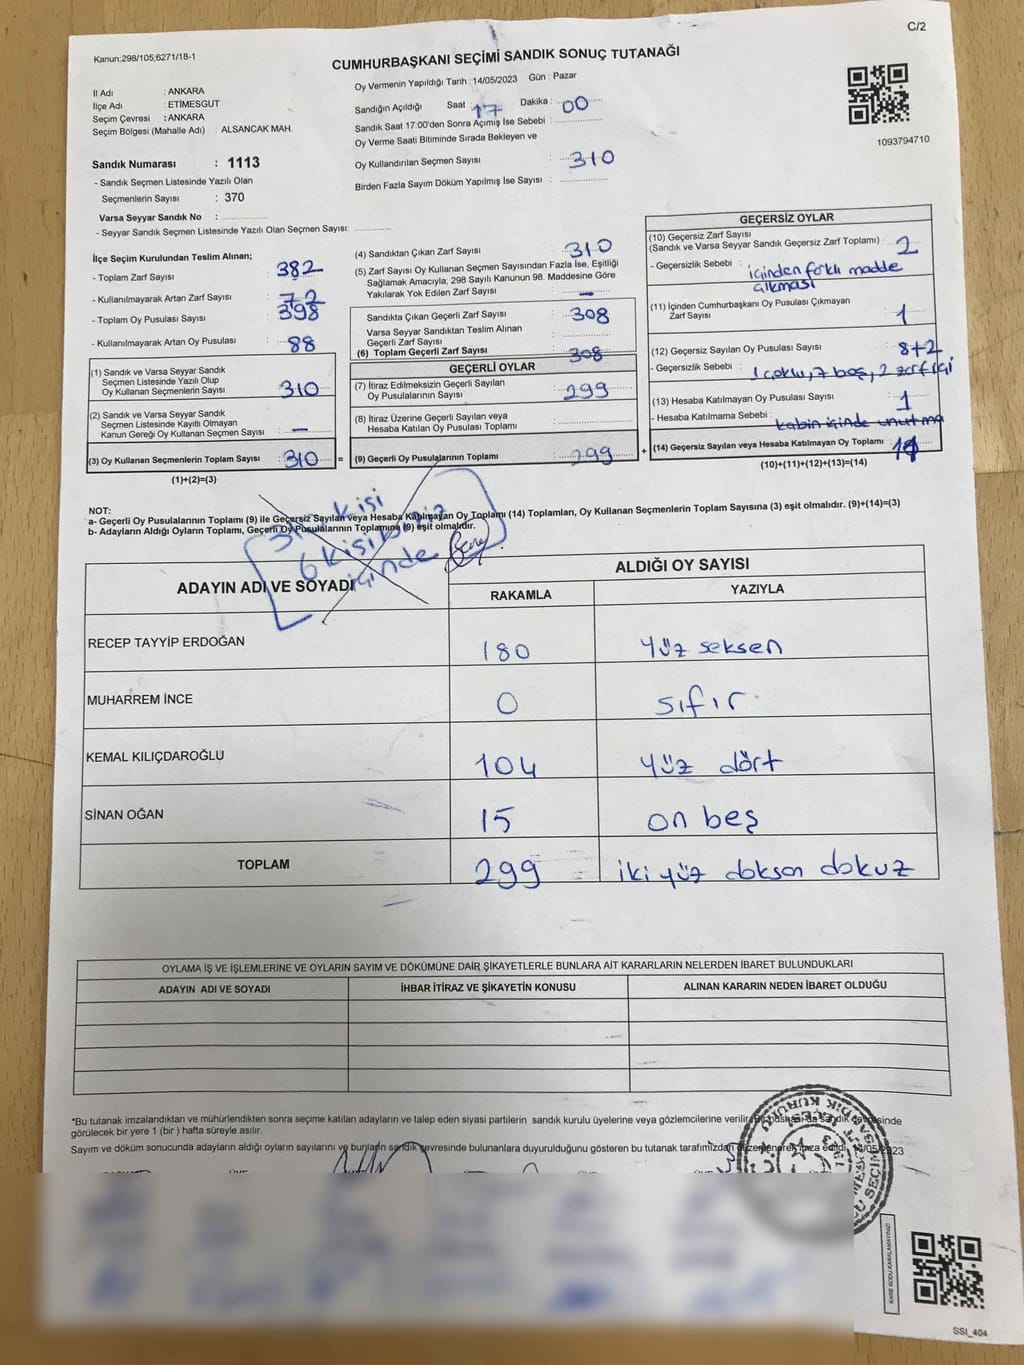 C/2
Kanun:298/105;6271/18-1
CUMHURBAŞKANI SEÇİMİ SANDIK SONUÇ TUTANAĞI
Oy Vermenin Yapıldığı Tarih : 14/05/2023 Gün : Pazar
İl Adı : ANKARA
İlçe Adı : ETİMESGUT
Seçim Çevresi : ANKARA
Seçim Bölgesi (Mahalle Adı) : ALSANCAK MAH.
Sandığın Açıldığı Saat : 17 Dakika : 00
Sandık Saat 17:00'den Sonra Açımış İse Sebebi :
Oy Verme Saati Bitiminde Sırada Bekleyen ve
Oy Kullandırılan Seçmen Sayısı : 310
Birden Fazla Sayım Döküm Yapılmış İse Sayısı :
1093794710
Sandık Numarası : 1113
- Sandık Seçmen Listesinde Yazılı Olan
Seçmenlerin Sayısı : 370
Varsa Seyyar Sandık No :
- Seyyar Sandık Seçmen Listesinde Yazılı Olan Seçmen Sayısı:
İlçe Seçim Kurulundan Teslim Alınan;
- Toplam Zarf Sayısı : 382
- Kullanılmayarak Artan Zarf Sayısı : 72
- Toplam Oy Pusulası Sayısı : 398
- Kullanılmayarak Artan Oy Pusulası : 88
(1) Sandık ve Varsa Seyyar Sandık
Seçmen Listesinde Yazılı Olup
Oy Kullanan Seçmenlerin Sayısı : 310
(2) Sandık ve Varsa Seyyar Sandık
Seçmen Listesinde Kayıtlı Olmayan
Kanun Gereği Oy Kullanan Seçmen Sayısı : –
(3) Oy Kullanan Seçmenlerin Toplam Sayısı : 310 =
(1)+(2)=(3)
(4) Sandıktan Çıkan Zarf Sayısı : 310
(5) Zarf Sayısı Oy Kullanan Seçmen Sayısından Fazla İse, Eşitliği
Sağlamak Amacıyla, 298 Sayılı Kanunun 98. Maddesine Göre
Yakılarak Yok Edilen Zarf Sayısı : –
Sandıkta Çıkan Geçerli Zarf Sayısı : 308
Varsa Seyyar Sandıktan Teslim Alınan
Geçerli Zarf Sayısı :
(6) Toplam Geçerli Zarf Sayısı : 308
GEÇERLİ OYLAR
(7) İtiraz Edilmeksizin Geçerli Sayılan
Oy Pusulalarının Sayısı : 299
(8) İtiraz Üzerine Geçerli Sayılan veya
Hesaba Katılan Oy Pusulası Toplamı :
(9) Geçerli Oy Pusulalarının Toplamı : 299 +
GEÇERSİZ OYLAR
(10) Geçersiz Zarf Sayısı
(Sandık ve Varsa Seyyar Sandık Geçersiz Zarf Toplamı) : 2
- Geçersizlik Sebebi : içinden farklı madde
çıkması
(11) İçinden Cumhurbaşkanı Oy Pusulası Çıkmayan
Zarf Sayısı : 1
(12) Geçersiz Sayılan Oy Pusulası Sayısı : 8+2
- Geçersizlik Sebebi : 1 çoklu, 7 boş, 2 zarf içi
(13) Hesaba Katılmayan Oy Pusulası Sayısı : 1
- Hesaba Katılmama Sebebi : kabin içinde unutma
(14) Geçersiz Sayılan veya Hesaba Katılmayan Oy Toplamı :
(10)+(11)+(12)+(13)=(14)
NOT:
a- Geçerli Oy Pusulalarının Toplamı (9) ile Geçersiz Sayılan veya Hesaba Katılmayan Oy Toplamı (14) Toplamları, Oy Kullanan Seçmenlerin Toplam Sayısına (3) eşit olmalıdır. (9)+(14)=(3)
b- Adayların Aldığı Oyların Toplamı, Geçerli Oy Pusulalarının Toplamına (9) eşit olmalıdır.
kişi
6 kişi
içinde
ADAYIN ADI VE SOYADI
ALDIĞI OY SAYISI
RAKAMLA YAZIYLA
RECEP TAYYİP ERDOĞAN 180 yüz seksen
MUHARREM İNCE 0 sıfır
KEMAL KILIÇDAROĞLU 104 yüz dört
SİNAN OĞAN 15 on beş
TOPLAM 299 iki yüz doksan dokuz
OYLAMA İŞ VE İŞLEMLERİNE VE OYLARIN SAYIM VE DÖKÜMÜNE DAİR ŞİKAYETLERLE BUNLARA AİT KARARLARIN NELERDEN İBARET BULUNDUKLARI
ADAYIN ADI VE SOYADI İHBAR İTİRAZ VE ŞİKAYETİN KONUSU ALINAN KARARIN NEDEN İBARET OLDUĞU
*Bu tutanak imzalandıktan ve mühürlendikten sonra seçime katılan adayların ve talep eden siyasi partilerin sandık kurulu üyelerine veya gözlemcilerine verilir. Bir başkası da sandık çevresinde
görülecek bir yere 1 (bir ) hafta süreyle asılır.
Sayım ve döküm sonucunda adayların aldığı oyların sayılarını ve bunların sandık çevresinde bulunanlara duyurulduğunu gösteren bu tutanak tarafımızdan düzenlenerek imza edildi. 14/05/2023
KARE KODU KARALAMAYINIZ!
SSI_404